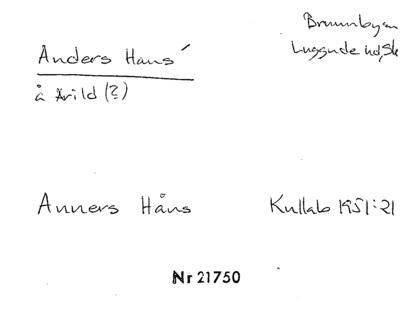 Anders Hans'
å Arild (?)
Brunnbyan
Luggude hd, Sk
Anners Håns
Kullab 1951:21
Nr 21750